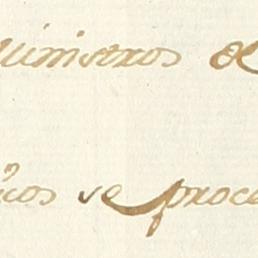 ministros de
cos se proce